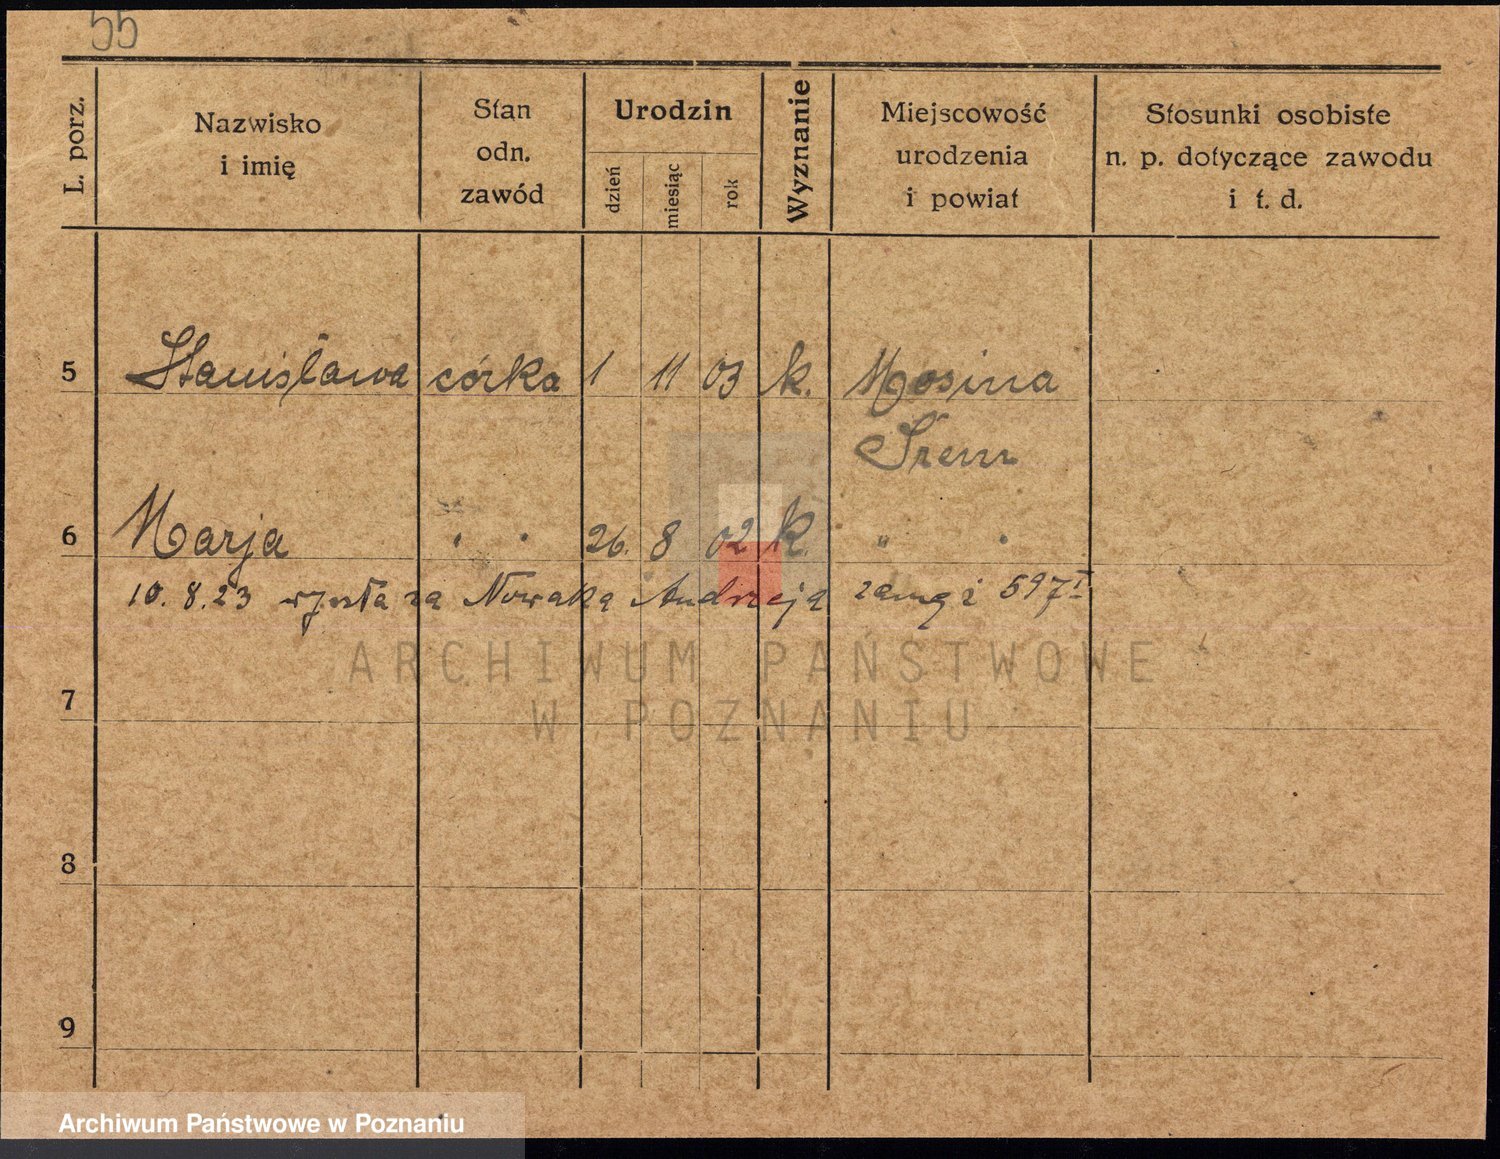 55
L. porz.
Nazwisko
i imię
Stan
odn.
zawód
Urodzin
dzień
miesiąc
rok
Wyznanie
Miejscowość
urodzenia
i powiat
Stosunki osobiste
n. p. dotyczące zawodu
i t. d.
5 Stanisława córka 1 11 03 k. Mosina
Śrem
6 Marja " " 26. 8 02 k. " "
10.8.23 wyszła za Nowaka Andrzeja 597 I
ARCHIWUM PAŃSTWOWE
W POZNANIU
7
8
9
Archiwum Państwowe w Poznaniu